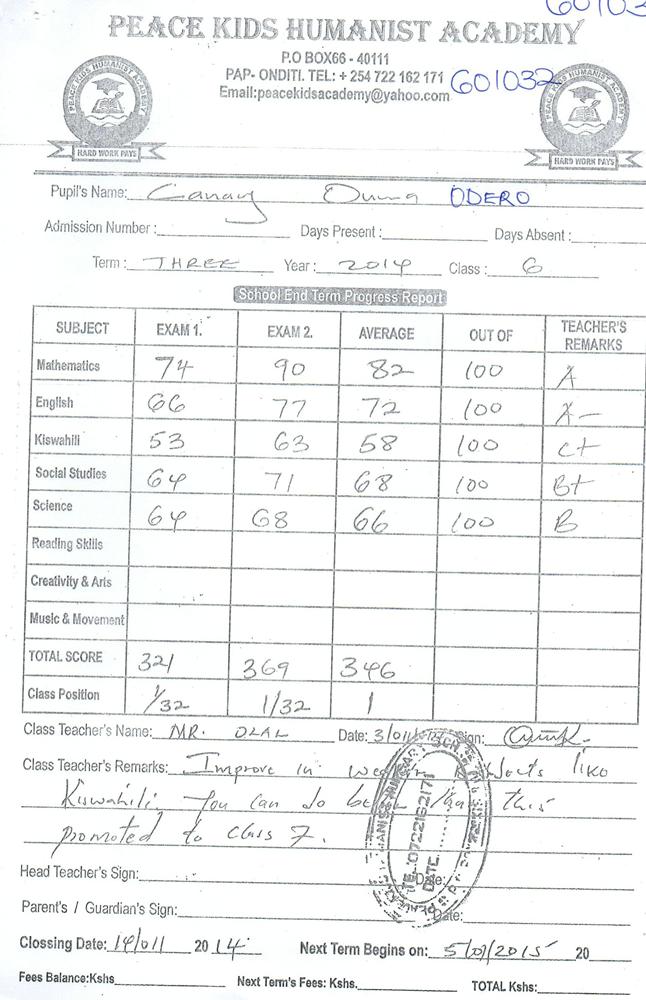 PEACE KIDS HUMANIST ACADEMY
P.O BOX66 - 40111
PAP- ONDITI. TEL: + 254 722 162 171
Email:peacekidsacademy@yahoo.com
601032
PEACE KIDS HUMANIST ACADEMY
HARD WORK PAYS
PEACE KIDS HUMANIST ACADEMY
HARD WORK PAYS
Pupil's Name: ODERO
Admission Number : Days Present : Days Absent :
Term : THREE Year : 2014 Class : 6
School End Term Progress Report
SUBJECT EXAM 1. EXAM 2. AVERAGE OUT OF TEACHER'S REMARKS
Mathematics 74 90 82 100 A
English 66 77 72 100 A-
Kiswahili 53 63 58 100 C+
Social Studies 64 71 68 100 B+
Science 64 68 66 100 B
Reading Skills
Creativity & Arts
Music & Movement
TOTAL SCORE 321 369 346
Class Position 1/32 1/32 1
Class Teacher's Name: MR. OLAL Date: Sign:
Class Teacher's Remarks: Improve in like
Kiswahili. You can do this
promoted to class 7.
Head Teacher's Sign: Date:
Parent's / Guardian's Sign: Date:
TEL: 0722162171
DATE
Clossing Date: 14/011 2014 Next Term Begins on: 5/01/2015 20
Fees Balance:Kshs Next Term's Fees: Kshs. TOTAL Kshs: